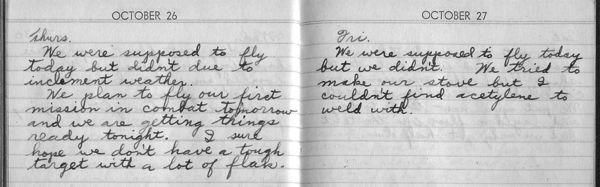 OCTOBER 26
Thurs.
We were supposed to fly
today but didn't due to
inclement weather.
We plan to fly our first
mission in combat tomorrow
and we are getting things
ready tonight. I sure
hope we don't have a tough
target with a lot of flak.
OCTOBER 27
Fri.
We were supposed to fly today
but we didn't. We tried to
make our stove but I
couldn't find acetylene to
weld with.